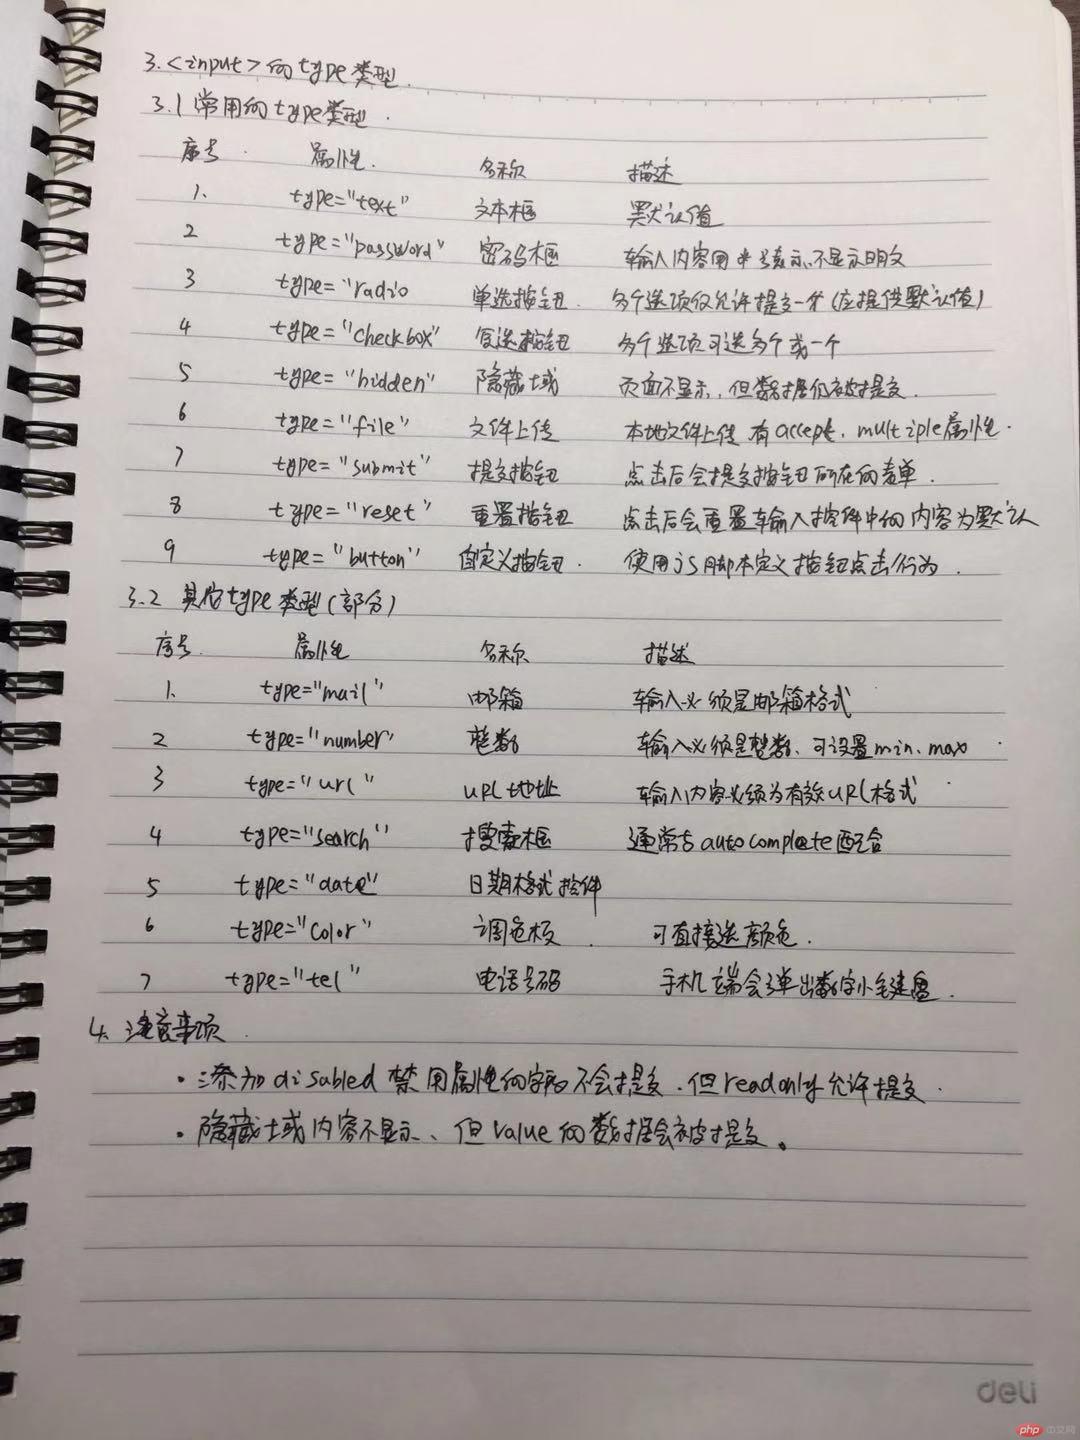 3.<input>的type类型.
3.1 常用的type类型.
序号 属性. 名称 描述
1. type="text" 文本框 默认值
2 type="password" 密码框 输入内容用*号表示、不显示明文
3 type="radio 单选按钮. 多个选项仅允许提交一个(应提供默认值)
4 type="checkbox" 复选按钮 多个选项可选多个或一个
5 type="hidden" 隐藏域 页面不显示,但数据仍被提交.
6 type="file" 文件上传 本地文件上传 有accept、multiple属性.
7 type="submit" 提交按钮 点击后会提交按钮所在的表单.
8 type="reset" 重置按钮 点击后会重置输入控件中的内容为默认
9 type="button" 自定义按钮. 使用js脚本定义按钮点击行为.
3.2 其它type类型(部分)
序号. 属性 名称 描述
1. type="mail" 邮箱 输入必须是邮箱格式
2 type="number" 整数 输入必须是整数、可设置min、max
3 type="url" URL地址 输入内容必须为有效URL格式
4 type="search" 搜索框 通常与autocomplete配合
5 type="date" 日期格式控件
6 type="color" 调色板. 可直接选颜色.
7 type="tel" 电话号码 手机端会弹出数字小键盘.
4. 注意事项.
·添加disabled禁用属性的字段不会提交.但readonly允许提交.
·隐藏域内容不显示、但value的数据会被提交。
deli
php 中文网